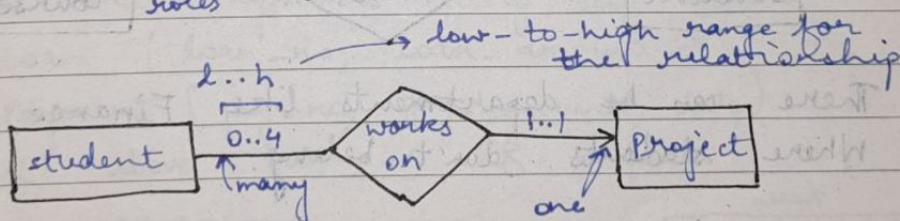 roles
low-to-high range for
the relationship
l..h
0..4
many
student
works
on
1..1
one
Project